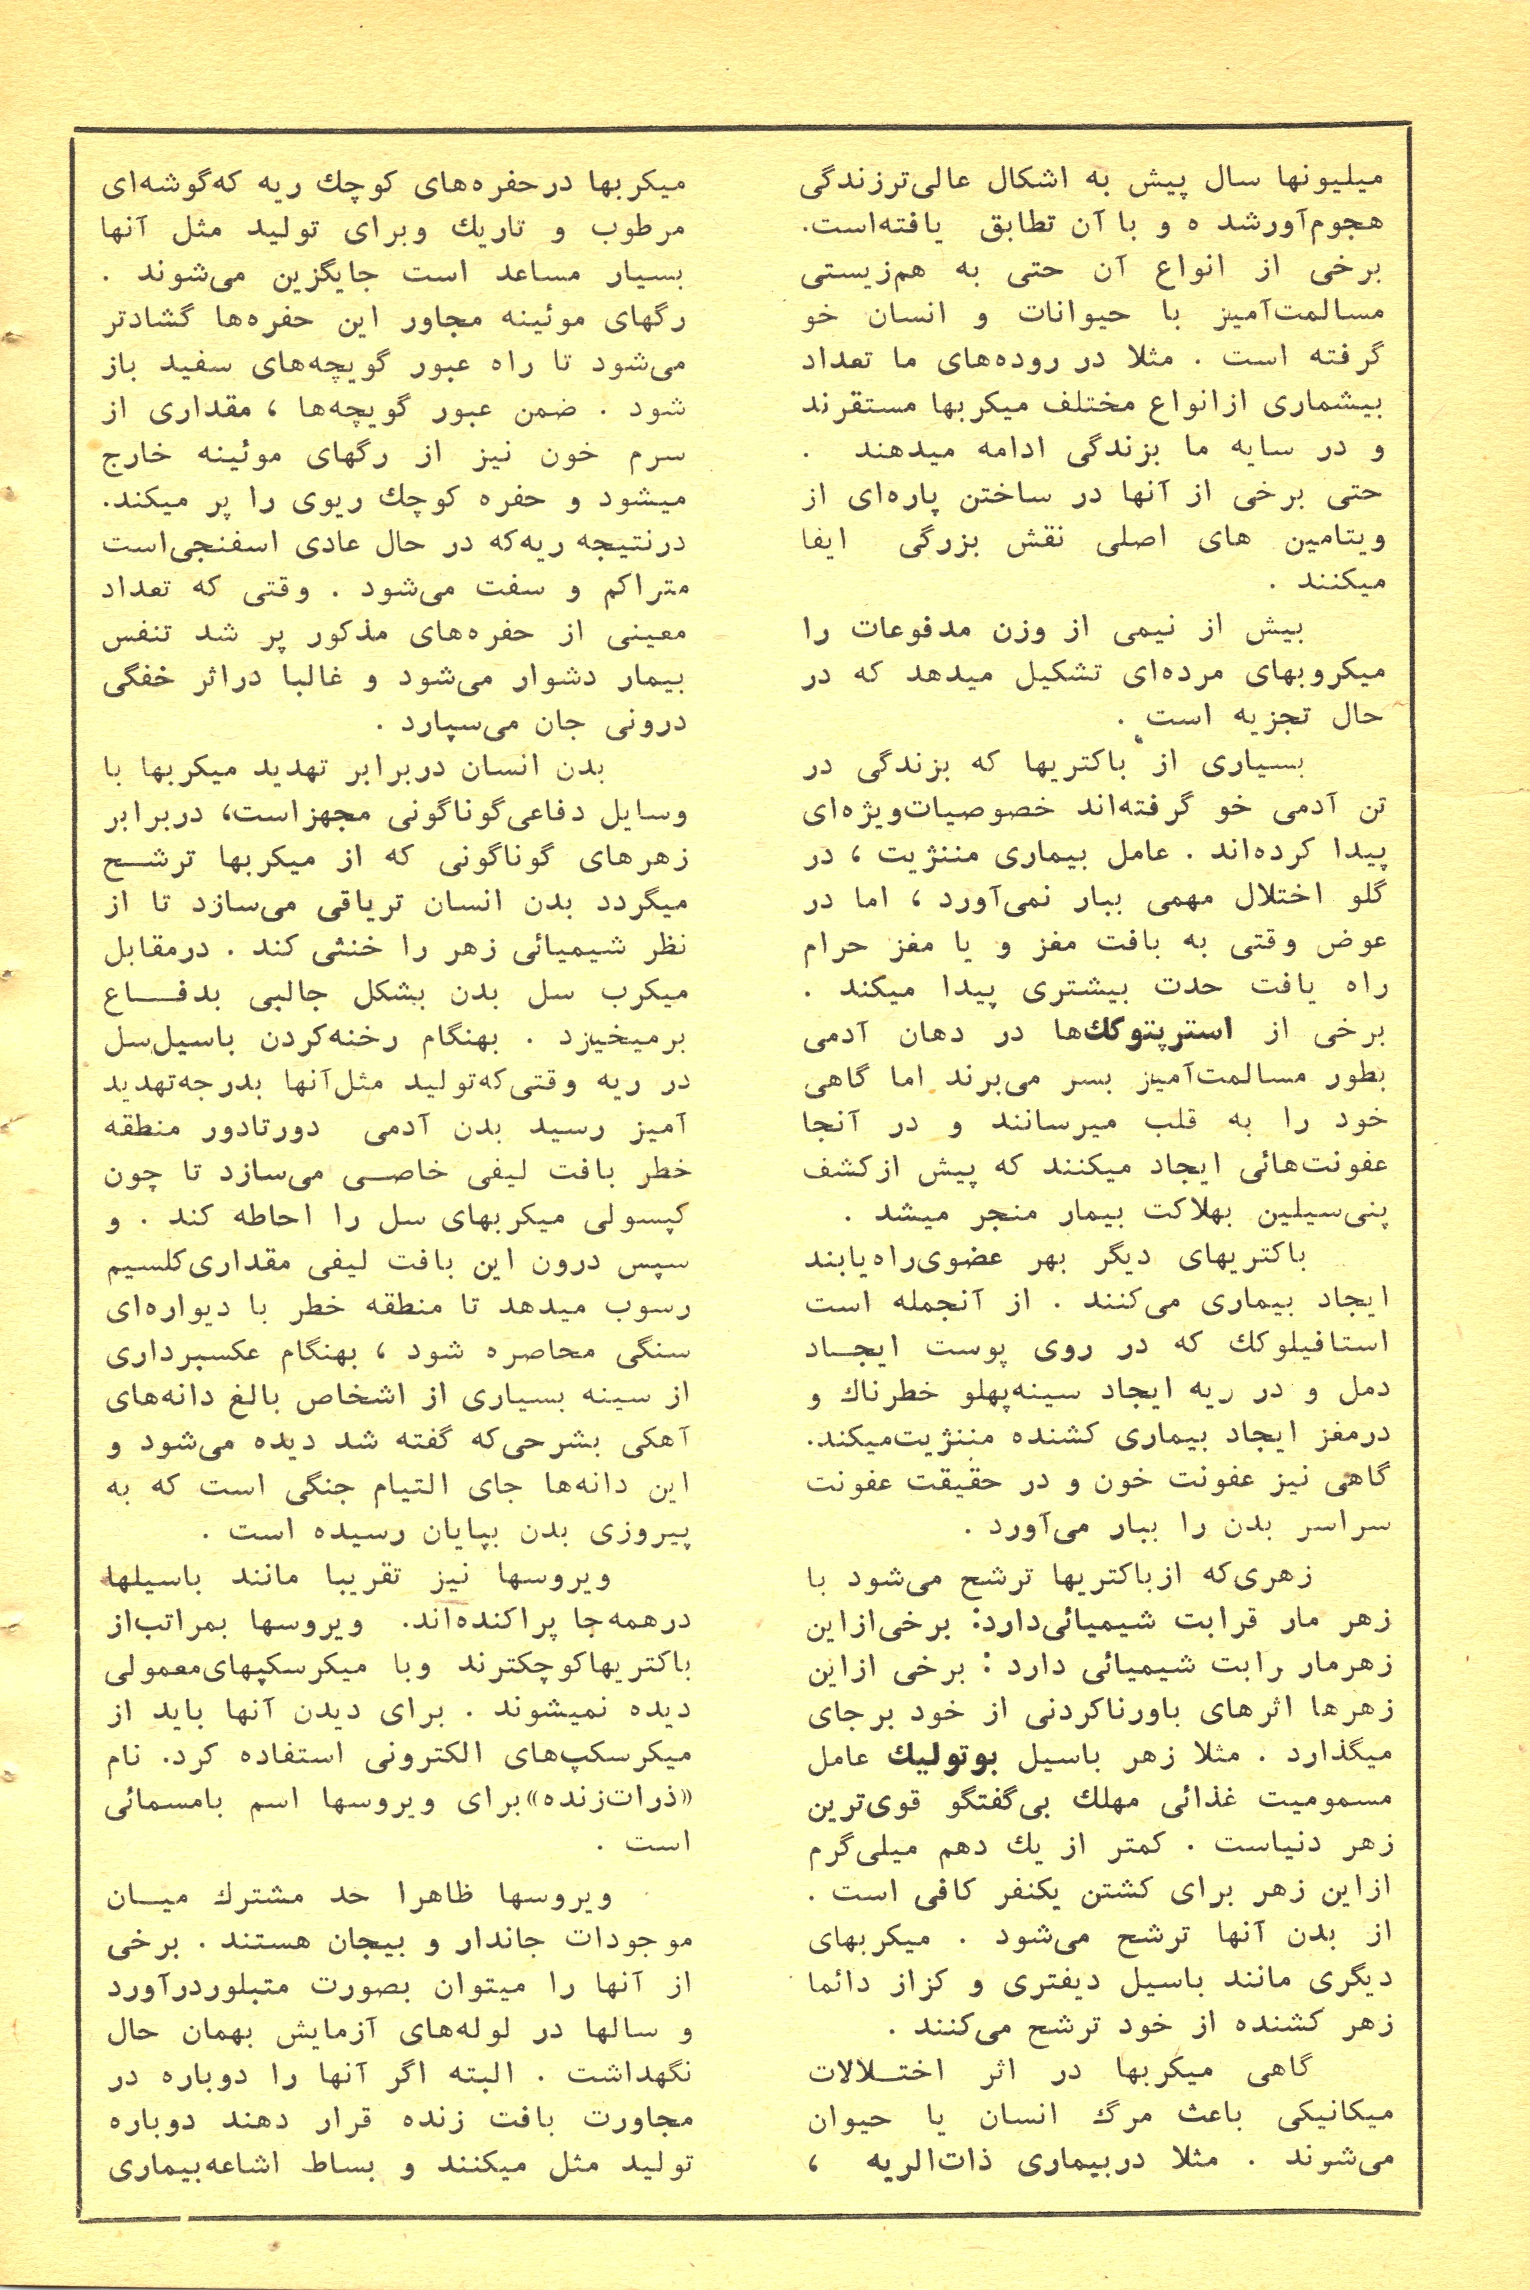 میلیونها سال پیش به اشکال عالی‌ترزندگی
هجوم‌آورشد ه و با آن تطابق یافته‌است.
برخی از انواع آن حتی به هم‌زیستی
مسالمت‌آمیز با حیوانات و انسان خو
گرفته است . مثلا در روده‌های ما تعداد
بیشماری ازانواع مختلف میکربها مستقرند
و در سایه ما بزندگی ادامه میدهند .
حتی برخی از آنها در ساختن پاره‌ای از
ویتامین های اصلی نقش بزرگی ایفا
میکنند .
بیش از نیمی از وزن مدفوعات را
میکروبهای مرده‌ای تشکیل میدهد که در
حال تجزیه است .
بسیاری از باکتریها که بزندگی در
تن آدمی خو گرفته‌اند خصوصیات‌ویژه‌ای
پیدا کرده‌اند . عامل بیماری مننژیت ، در
گلو اختلال مهمی ببار نمی‌آورد ، اما در
عوض وقتی به بافت مغز و یا مغز حرام
راه یافت حدت بیشتری پیدا میکند .
برخی از استرپتوکك‌ها در دهان آدمی
بطور مسالمت‌آمیز بسر می‌برند اما گاهی
خود را به قلب میرسانند و در آنجا
عفونت‌هائی ایجاد میکنند که پیش ازکشف
پنی‌سیلین بهلاکت بیمار منجر میشد .
باکتریهای دیگر بهر عضوی‌راه‌یابند
ایجاد بیماری می‌کنند . از آنجمله است
استافیلوکك که در روی پوست ایجـاد
دمل و در ریه ایجاد سینه‌پهلو خطرناك و
درمغز ایجاد بیماری کشنده مننژیت‌میکند.
گاهی نیز عفونت خون و در حقیقت عفونت
سراسر بدن را ببار می‌آورد .
زهری‌که ازباکتریها ترشح می‌شود با
زهر مار قرابت شیمیائی‌دارد: برخی‌ازاین
زهرمار رابت شیمیائی دارد : برخی ازاین
زهرها اثرهای باورناکردنی از خود برجای
میگذارد . مثلا زهر باسیل بوتولیك عامل
مسمومیت غذائی مهلك بی‌گفتگو قوی‌ترین
زهر دنیاست . کمتر از یك دهم میلی‌گرم
ازاین زهر برای کشتن یکنفر کافی است .
از بدن آنها ترشح می‌شود . میکربهای
دیگری مانند باسیل دیفتری و کزاز دائما
زهر کشنده از خود ترشح می‌کنند .
گاهی میکربها در اثر اختـلالات
میکانیکی باعث مرگ انسان یا حیوان
می‌شوند . مثلا دربیماری ذات‌الریه ،
میکربها درحفره‌های کوچك ریه که‌گوشه‌ای
مرطوب و تاریك وبرای تولید مثل آنها
بسیار مساعد است جایگزین می‌شوند .
رگهای موئینه مجاور این حفره‌ها گشادتر
می‌شود تا راه عبور گویچه‌های سفید باز
شود . ضمن عبور گویچه‌ها ، مقداری از
سرم خون نیز از رگهای موئینه خارج
میشود و حفره کوچك ریوی را پر میکند.
درنتیجه ریه‌که در حال عادی اسفنجی‌است
متراکم و سفت می‌شود . وقتی که تعداد
معینی از حفره‌های مذکور پر شد تنفس
بیمار دشوار می‌شود و غالبا دراثر خفگی
درونی جان می‌سپارد .
بدن انسان دربرابر تهدید میکربها با
وسایل دفاعی‌گوناگونی مجهزاست، دربرابر
زهرهای گوناگونی که از میکربها ترشـح
میگردد بدن انسان تریاقی می‌سازد تا از
نظر شیمیائی زهر را خنثی کند . درمقابل
میکرب سل بدن بشکل جالبی بدفـاع
برمیخیزد . بهنگام رخنه‌کردن باسیل‌سل
در ریه وقتی‌که‌تولید مثل‌آنها بدرجه‌تهدید
آمیز رسید بدن آدمی دورتادور منطقه
خطر بافت لیفی خاصـی می‌سازد تا چون
کپسولی میکربهای سل را احاطه کند . و
سپس درون این بافت لیفی مقداری‌کلسیم
رسوب میدهد تا منطقه خطر با دیواره‌ای
سنگی محاصره شود ، بهنگام عکسبرداری
از سینه بسیاری از اشخاص بالغ دانه‌های
آهکی بشرحی‌که گفته شد دیده می‌شود و
این دانه‌ها جای التیام جنگی است که به
پیروزی بدن بپایان رسیده است .
ویروسها نیز تقریبا مانند باسیلها
درهمه‌جا پراکنده‌اند. ویروسها بمراتب‌از
باکتریهاکوچکترند وبا میکرسکپهای‌معمولی
دیده نمیشوند . برای دیدن آنها باید از
میکرسکپ‌های الکترونی استفاده کرد. نام
«ذرات‌زنده»برای ویروسها اسم بامسمائی
است .
ویروسها ظاهرا حد مشترك میـان
موجودات جاندار و بیجان هستند . برخی
از آنها را میتوان بصورت متبلوردرآورد
و سالها در لوله‌های آزمایش بهمان حال
نگهداشت . البته اگر آنها را دوباره در
مجاورت بافت زنده قرار دهند دوباره
تولید مثل میکنند و بساط اشاعه‌بیماری